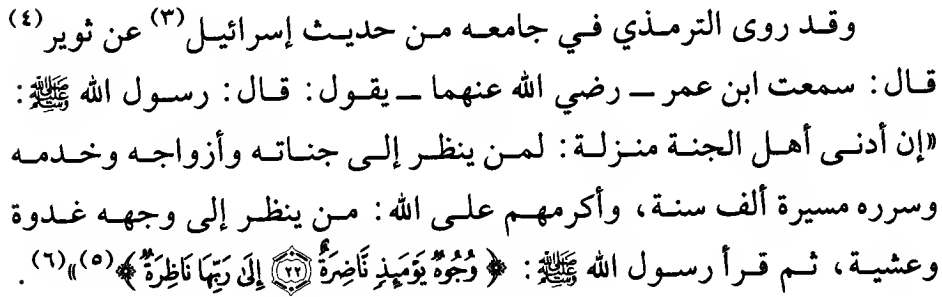 وقد روى الترمذي في جامعه من حديث إسرائيل(٣) عن ثوير(٤)
قال: سمعت ابن عمر ــ رضي الله عنهما ــ يقول: قال: رسول الله ﷺ:
«إن أدنى أهل الجنة منزلة: لمن ينظر إلى جناته وأزواجه وخدمه
وسرره مسيرة ألف سنة، وأكرمهم على الله: من ينظر إلى وجهه غدوة
وعشية، ثم قرأ رسول الله ﷺ: ﴿وُجُوهٌ يَوْمَئِذٍ نَّاضِرَةٌ ﴿٢٢﴾ إِلَىٰ رَبِّهَا نَاظِرَةٌ﴾(٥)»(٦).